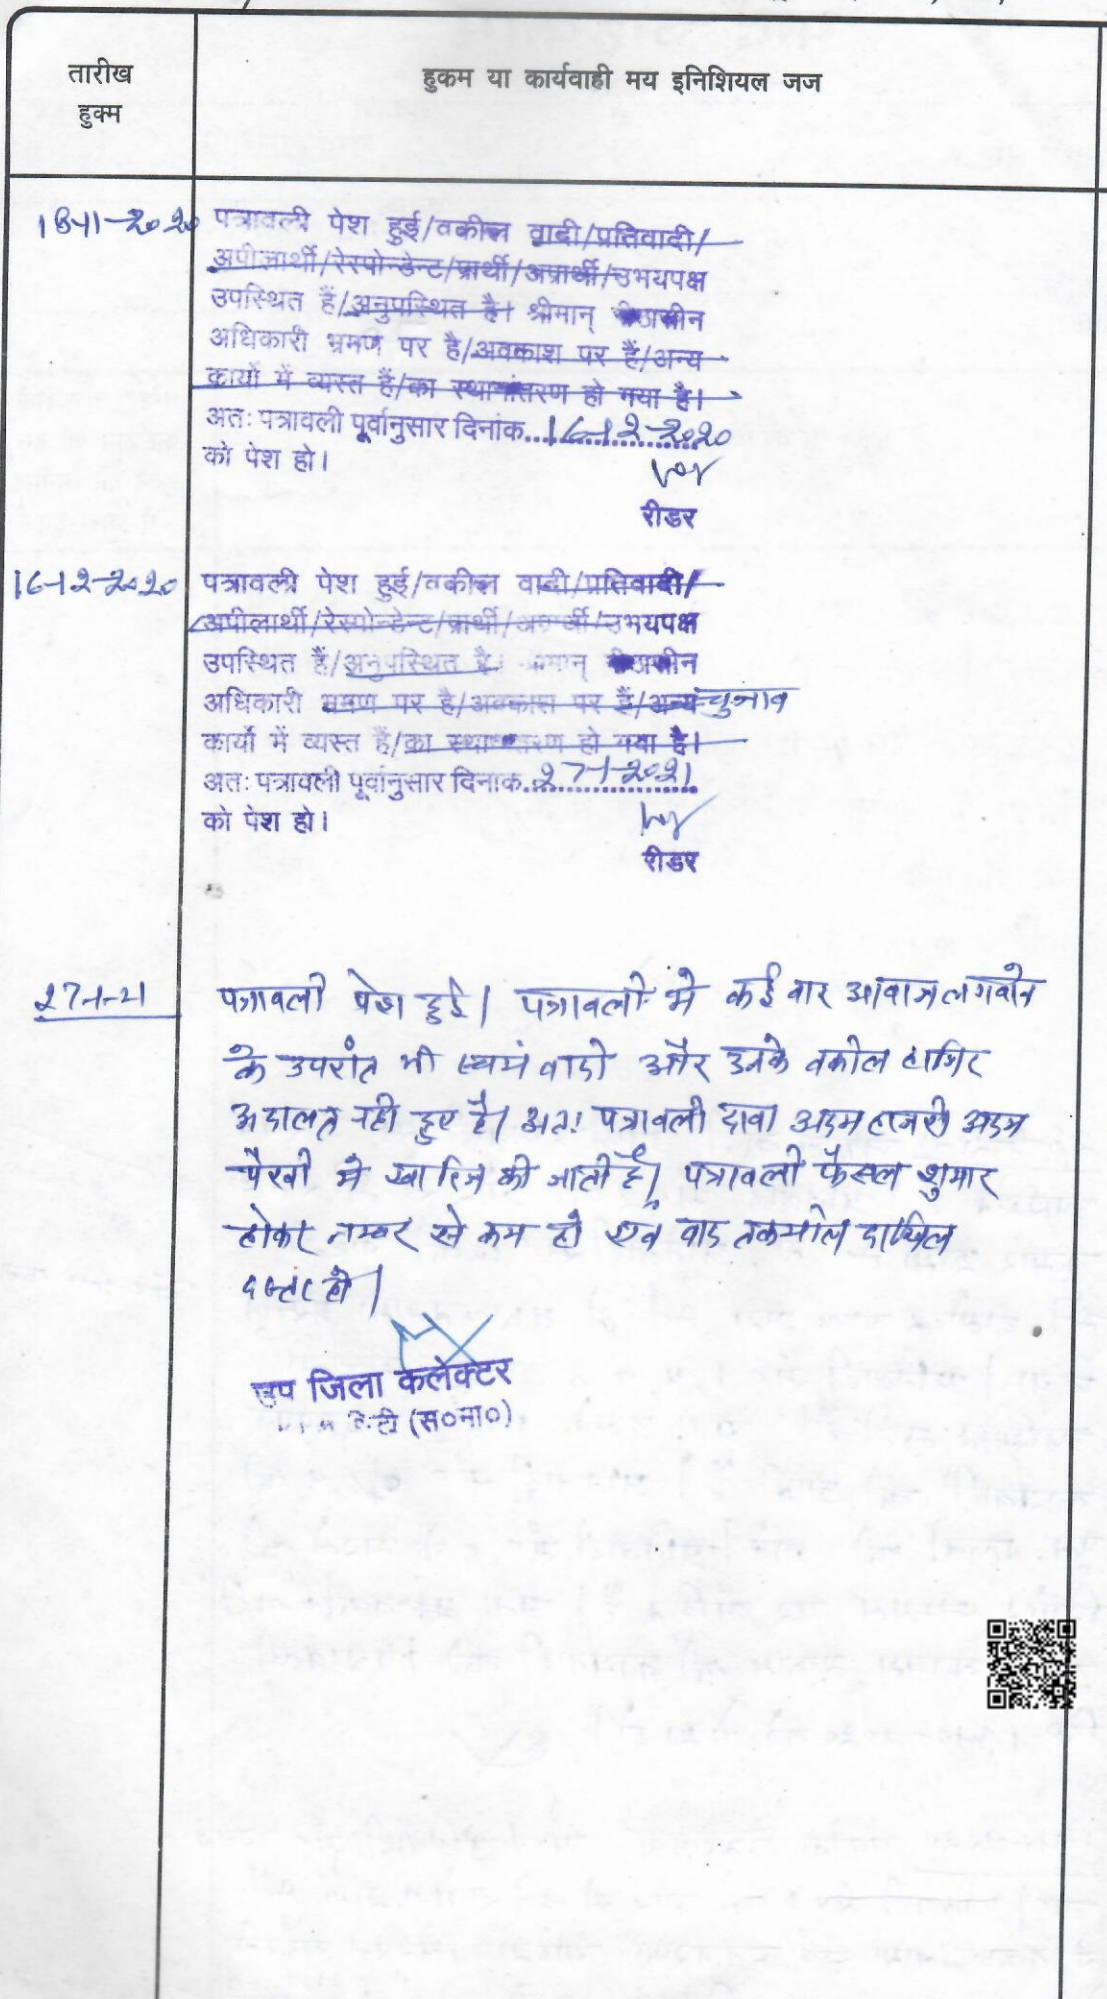 तारीख
हुक्म
हुकम या कार्यवाही मय इनिशियल जज
18-11-2020
पत्रावली पेश हुई/वकील वादी/प्रतिवादी/
अपीलार्थी/रेस्पोन्डेन्ट/प्रार्थी/अप्रार्थी/उभयपक्ष
उपस्थित हैं/अनुपस्थित है। श्रीमान् पीठासीन
अधिकारी भ्रमण पर है/अवकाश पर हैं/अन्य
कार्यो में व्यस्त हैं/का स्थानांतरण हो गया है।
अतः पत्रावली पूर्वानुसार दिनांक..16-12-2020
को पेश हो।
रीडर
16-12-2020
पत्रावली पेश हुई/वकील वादी/प्रतिवादी/
अपीलार्थी/रेस्पोन्डेन्ट/प्रार्थी/अप्रार्थी/उभयपक्ष
उपस्थित हैं/अनुपस्थित है। श्रीमान् पीठासीन
अधिकारी भ्रमण पर है/अवकाश पर हैं/अन्य चुनाव
कार्यो में व्यस्त हैं/का स्थानांतरण हो गया है।
अतः पत्रावली पूर्वानुसार दिनांक..27-1-2021
को पेश हो।
रीडर
27-1-21
पत्रावली पेश हुई। पत्रावली में कई बार आवाज लगवाने
के उपरांत भी स्वयं वादी और उनके वकील हाजिर
अदालत नही हुए है। अतः पत्रावली दावा अदम हाजरी अदम
पैरवी में खारिज की जाती है। पत्रावली फैसल शुमार
होकर नम्बर से कम हो एवं बाद तकमील दाखिल
दफ्तर हो।
उप जिला कलेक्टर
सिटी (स०मा०)